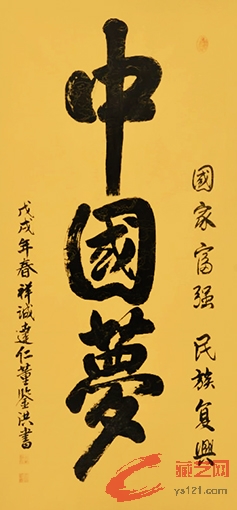 國家富强 民族复興
中國夢
戊戌年春祥诚达仁董鉴洪書
藏艺网
ys121.com